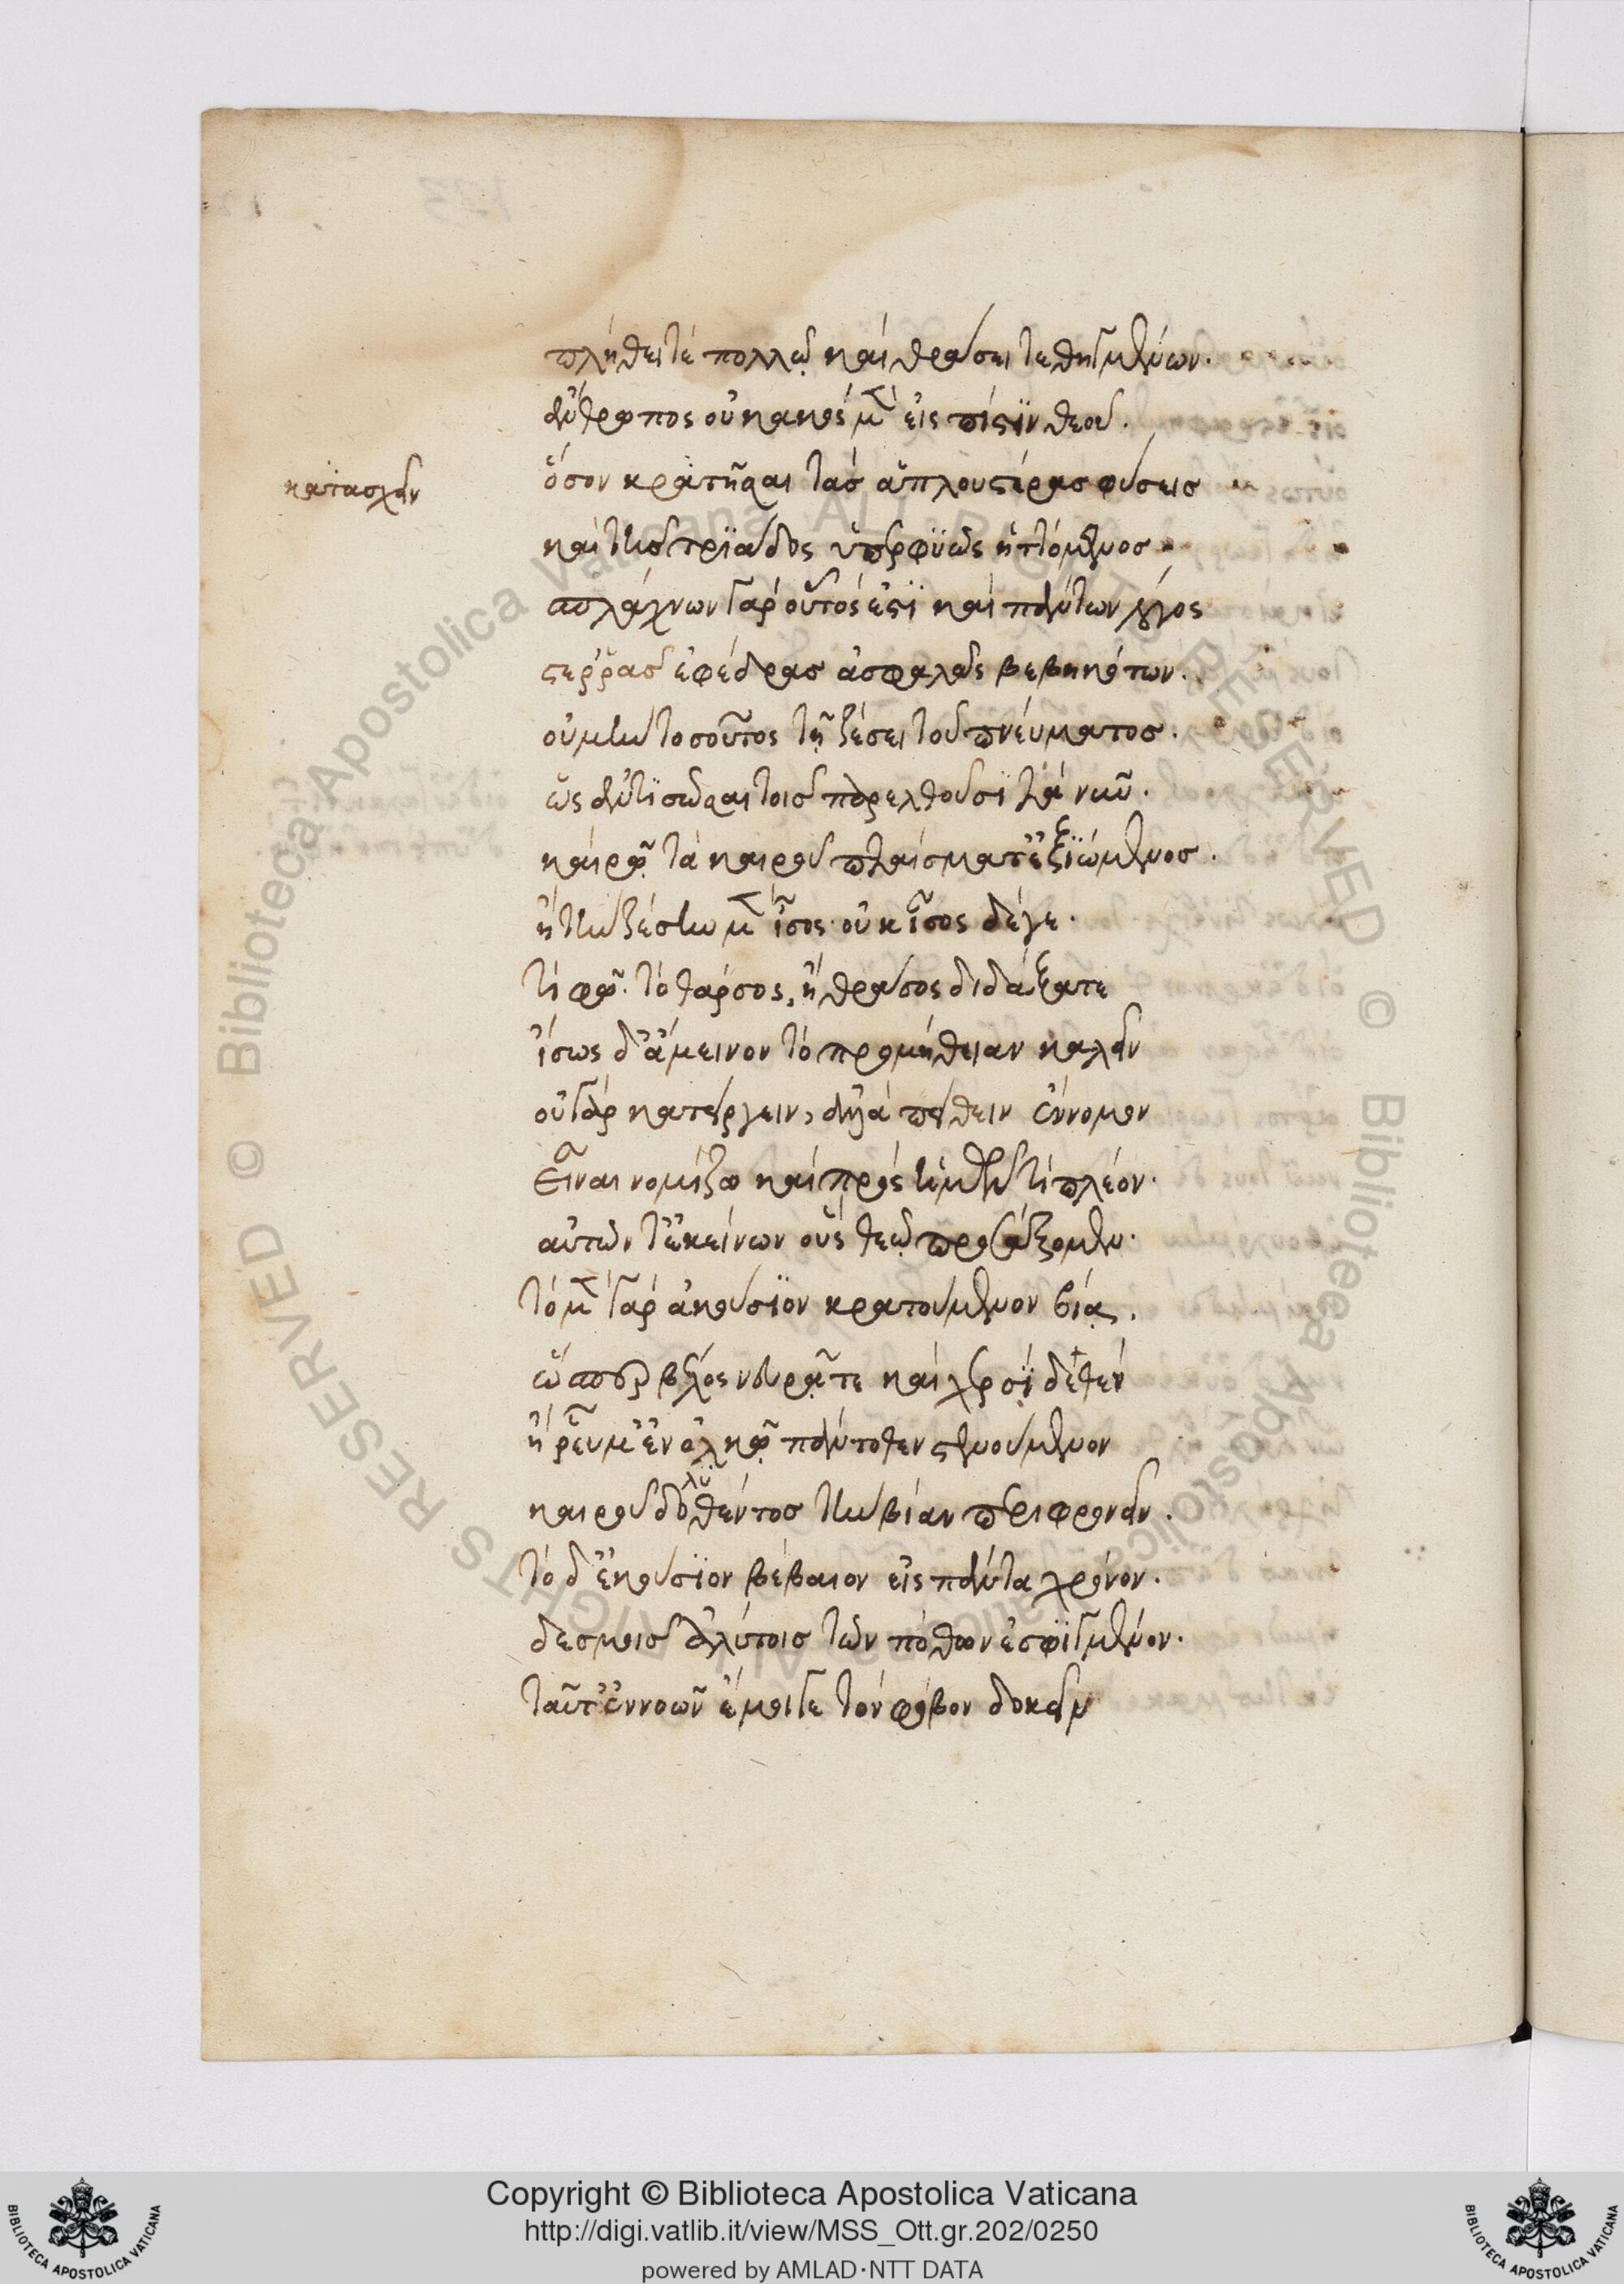 πλήθει τὲ πολλῷ καὶ θράσει τεθηγμένων.
ἄνθρωπος οὐ κακὸς μὲν εἰς πίστϊν θεοῦ.
κατασχεῖν
ὅσον κρατῆσαι τὰς ἁπλουστέρας φύσεις
καὶ τῆς τρϊάδος ὑπερφυῶς ἡττόμενος
σπλάγχνων γὰρ οὗτός ἐστϊ καὶ πάντων λόγος
στερρᾶς ἐφέδρας ἀσφαλῶς βεβηκότων.
οὐμὴν τοσοῦτος τῇ ζέσει τοῦ πνεύματος.
ὡς ἀντϊσῶσαι τοῖς παρελθοῦσϊ τὰ νῦν.
καιρῷ τὰ καιροῦ πταίσματ' ἐξϊώμενος.
ἢ τὴν ζέσιν μὲν ἶσος· οὐκ ἶσος δέγε.
τί φῶ. τὸ θάρσος, ἢ θράσος διδάξατε
ἴσως δ' ἄμεινον τὸ προμήθειαν καλεῖν
οὐ γὰρ κατείργειν, ἀλλὰ πείθειν ἔννομον
εἶναι νομίζω καὶ πρὸς ἡμῶν τί πλέον.
αὐτῶν τ' ἐκείνων οὓς θεῷ προσάξομεν.
τὸ μὲν γὰρ ἀκούσϊον κρατούμενον βίᾳ.
ὥσπερ βέλος νευρᾷ τε καὶ χερσϊ δεθέν
ἢ ῥεῦμ' ἐν ὁλκῷ πάντοθεν στενούμενον
λυ
καιροῦ δοθέντος τὴν βίαν περιφρονεῖν.
τὸ δ' ἑκούσϊον βέβαιον εἰς πάντα χρόνον.
δεσμοῖς ἀλύτοις τῶν πόθων ἐσφϊγμένον.
ταῦτ' ἐννοῶν ἔμοιγε τὸν φόβον δοκεῖ
Copyright © Biblioteca Apostolica Vaticana
http://digi.vatlib.it/view/MSS_Ott.gr.202/0250
powered by AMLAD·NTT DATA